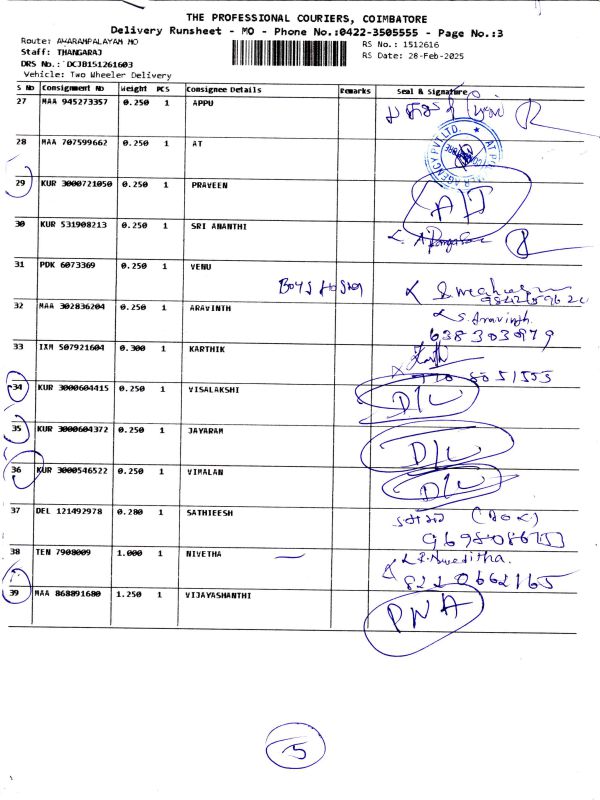 THE PROFESSIONAL COURIERS, COIMBATORE
Delivery Runsheet - MO - Phone No.:0422-3505555 - Page No.:3
Route: AWARAMPALAYAM MO
RS No.: 1512616
Staff: THANGARAJ
RS Date: 28-Feb-2025
DRS No.: DCJB151261603
Vehicle: Two Wheeler Delivery
S No Consignment No Weight PCS Consignee Details Remarks Seal & Signature
27 MAA 945273357 0.250 1 APPU
28 MAA 707599662 0.250 1 AT
29 KUR 3000721050 0.250 1 PRAVEEN
30 KUR 531908213 0.250 1 SRI ANANTHI
31 PDK 6073369 0.250 1 VENU
32 MAA 302836204 0.250 1 ARAVINTH S. Aravinth
6383030979
33 IXM 507921604 0.300 1 KARTHIK
34 KUR 3000604415 0.250 1 VISALAKSHI D/L
35 KUR 3000604372 0.250 1 JAYARAM D/L
36 KUR 3000546522 0.250 1 VIMALAN D/L
37 DEL 121492978 0.280 1 SATHIEESH
38 TEN 7908009 1.000 1 NIVETHA
8220662165
39 MAA 868891680 1.250 1 VIJAYASHANTHI PNA
5